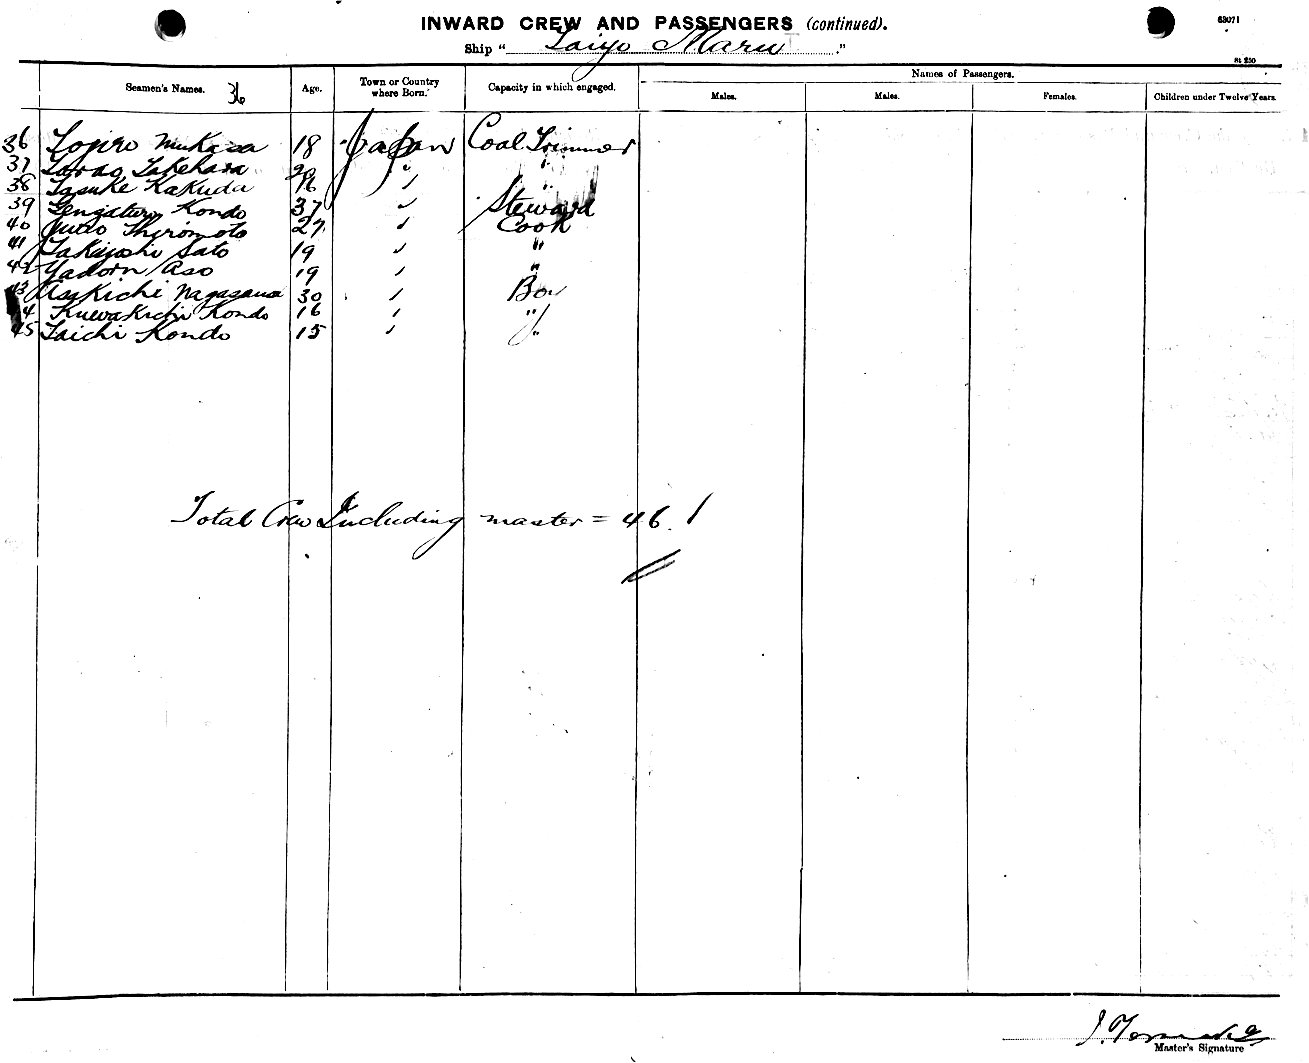 INWARD CREW AND PASSENGERS (continued).
63071
Ship " Taiyo Maru ."
Seamen's Names. 36
Age.
Town or Country where Born.
Capacity in which engaged.
Names of Passengers.
Males.
Males.
Females.
Children under Twelve Years.
36 Mukasa 18 Japan Coal Trimmer
37 Takehara "
38 Kakuda 16 " "
39 Kondo 37 " Steward
40 27 " Cook
41 Takiyoshi Sato 19 " "
42 Aso 19 " "
43 Asakichi Nagasawa 30 " Boy
44 Kuwakichi Kondo 16 " "
45 Taichi Kondo 15 " "
Total Crew Including master = 46.
Master's Signature